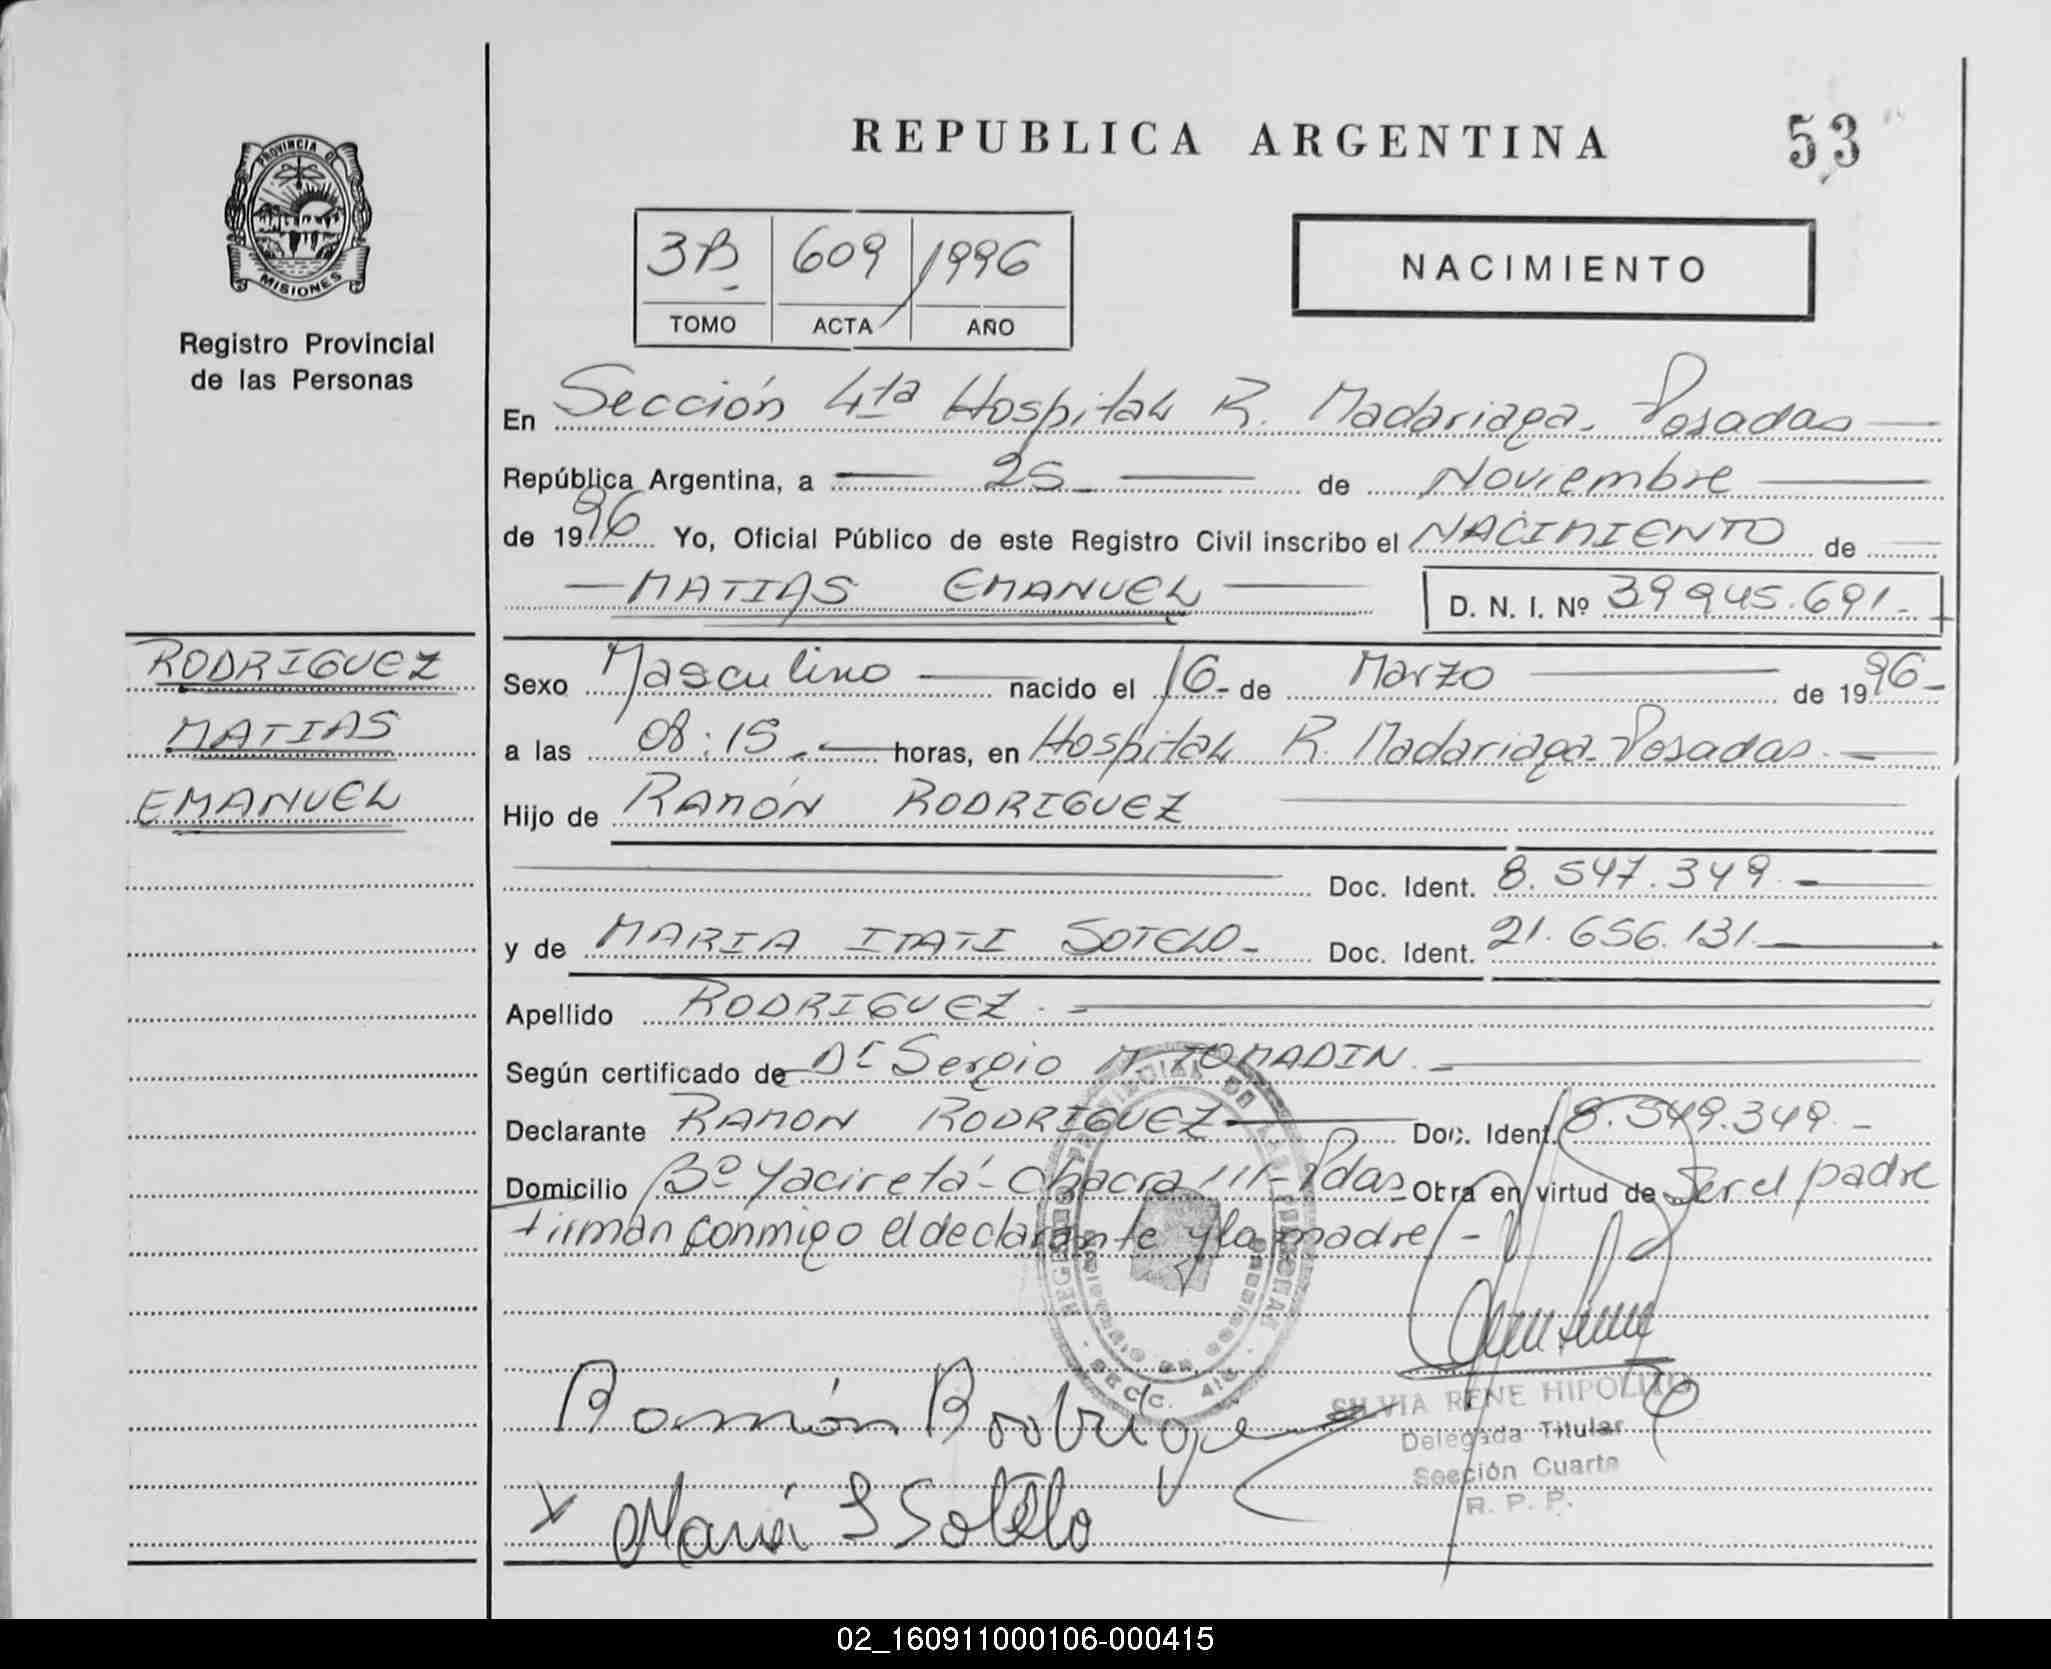 REPUBLICA ARGENTINA
53
PROVINCIA DE
MISIONES
Registro Provincial
de las Personas
3B 609 1996
TOMO ACTA AÑO
NACIMIENTO
En Sección 4ta Hospital R. Madariaga - Posadas
República Argentina, a 25 de Noviembre
de 1996 Yo, Oficial Público de este Registro Civil inscribo el NACIMIENTO de
MATIAS EMANUEL D. N. I. Nº 39 945.691.-
RODRIGUEZ
MATIAS
EMANUEL
Sexo Masculino nacido el 16- de Marzo de 1996-
a las 08:15.- horas, en Hospital R. Madariaga - Posadas.-
Hijo de RAMÓN RODRIGUEZ
Doc. Ident. 8.547.349.-
y de MARIA ITATI SOTELO- Doc. Ident. 21.656.131.-
Apellido RODRIGUEZ.-
Según certificado de Dr Sergio M. TOMADIN.-
Declarante RAMON RODRIGUEZ Doc. Ident. 8.549.349.-
Domicilio Bº Yacireta - Chacra 111 - Pdas - Obra en virtud de Ser el padre
firman conmigo el declarante y la madre.-
SECC. 4ta.
Ramón Rodrigue
SILVIA RENE HIPOLITO
Delegada Titular
Sección Cuarta
R. P. P.
X María I Sotelo
02_160911000106-000415